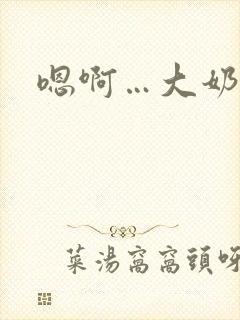 嗯啊…大奶
菜湯窩窩頭呀